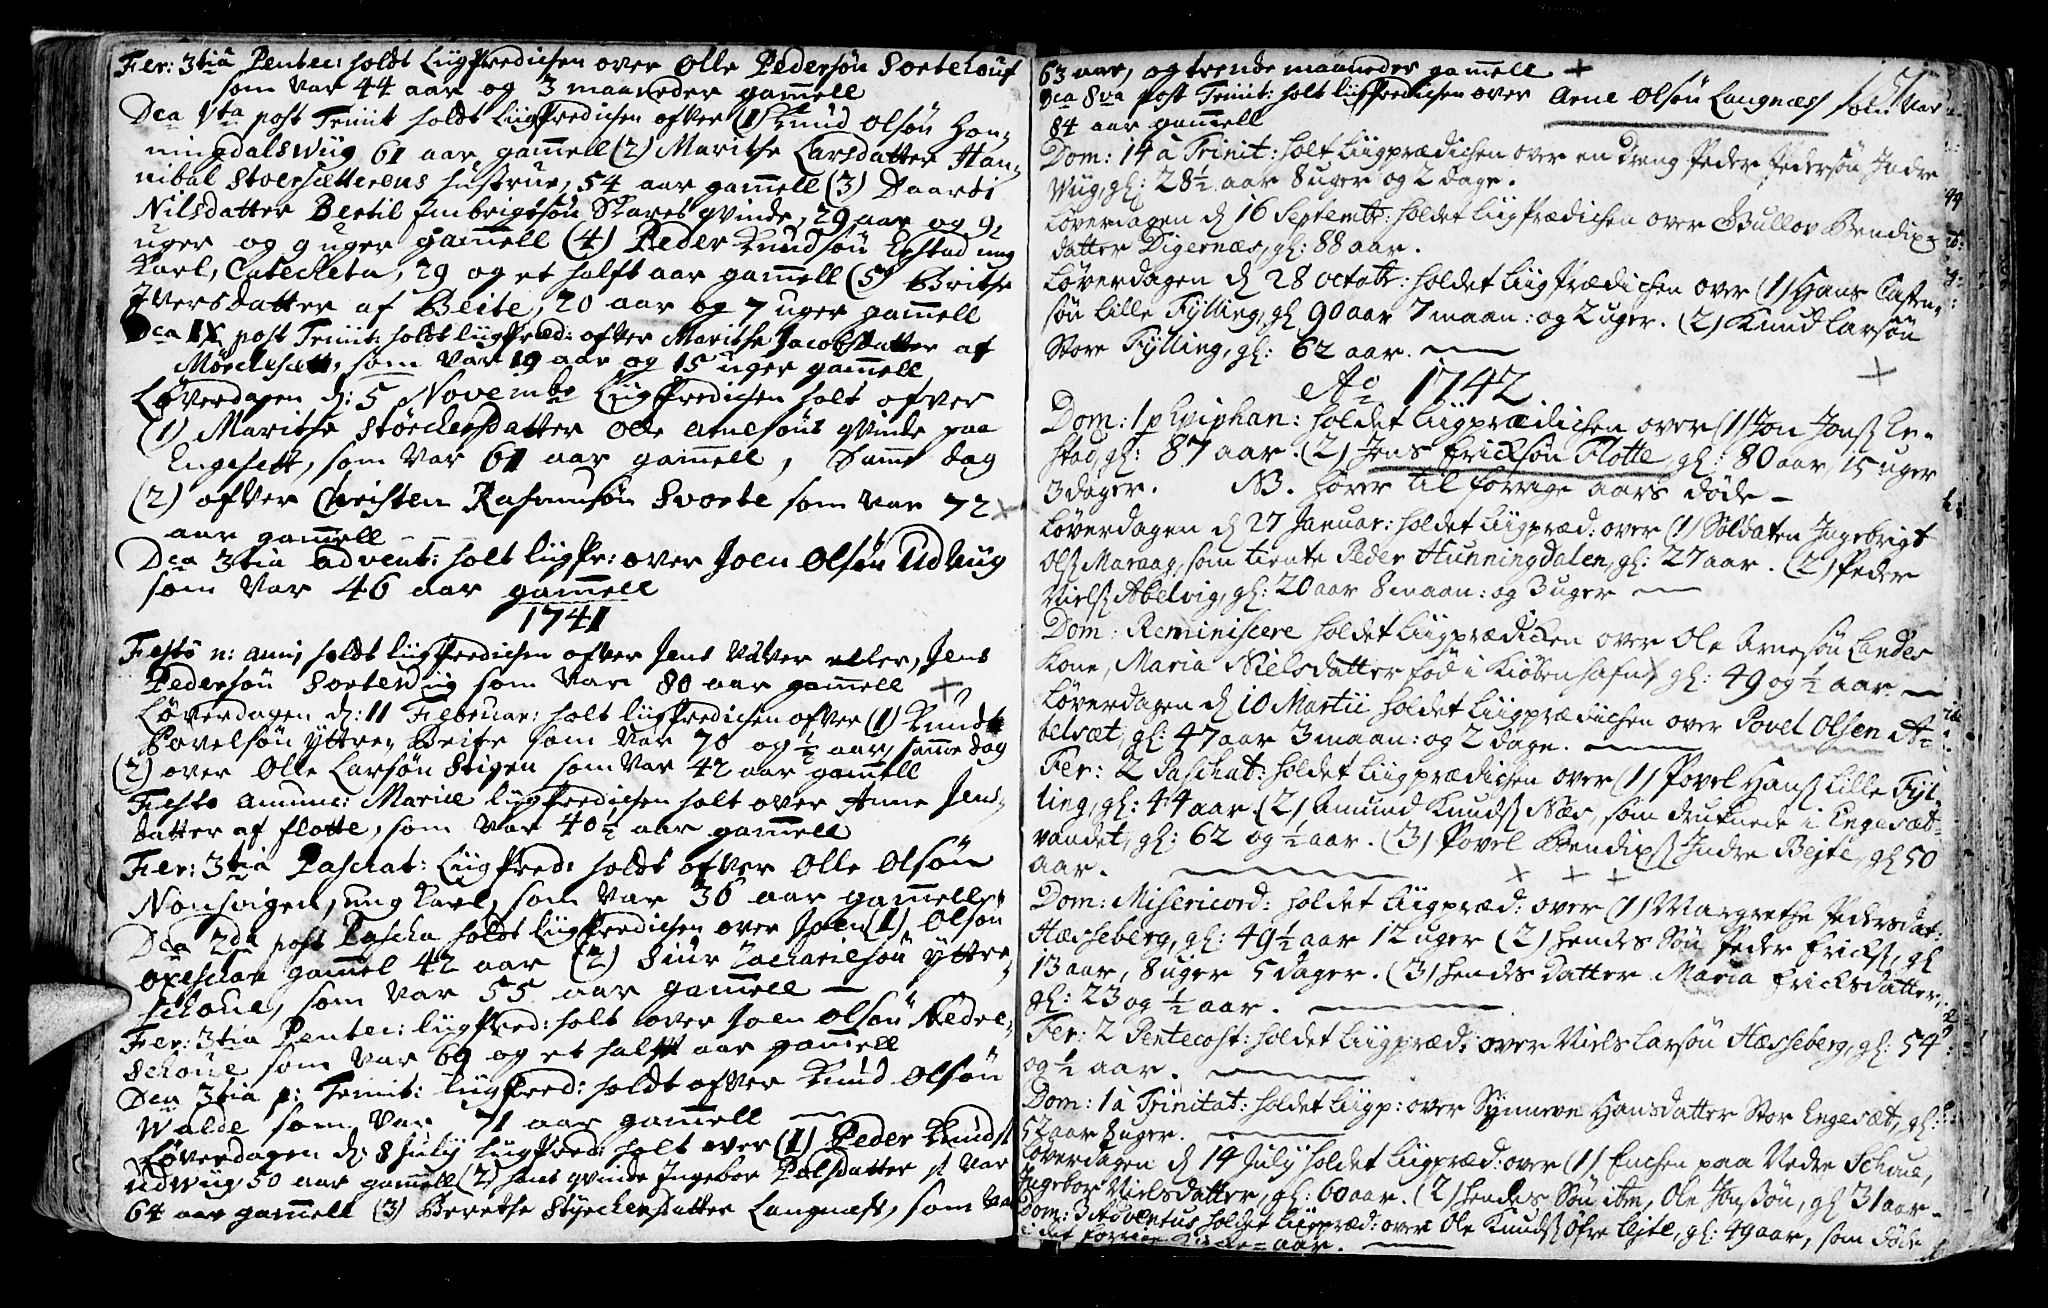 Fer: 3tia Pentec: holdt Liigprediken over Olle Pedersøn Sortehouf
som var 44 aar og 3 maaneder gamell
Dca 1ta post Trinit holdt Liigpredichen ofver (1) Knud Olsøn Hon-
ningdalswiig 61 aar gamell (2) Marithe Larsdatter Han-
nibal Stoersætterens hustrue, 54 aar gamell (3) Baardi
Nilsdatter Bertil Embrigtsøn Skares qvinde, 29 aar og 9
uger og 9 uger gamell (4) Peder Knudsøn Egstad ung
Karl, Catecheta, 29 og et halft aar gamell (5) Brithe
Iversdatter af Beite, 20 aar og 7 uger gamell
Dca IX post Trinit: holdt Liigpred: ofver Marithe Jacobsdatter af
Mörchesætt, som var 19 aar og 15 uger gamell
Løverdagen d: 5 Novembr Liigpredichen holt ofver
(1) Marithe Störchersdatter Olle Arnesøns qvinde paa
Engesett, som var 61 aar gamell, Samme dag
(2) ofver Christen Rasmusøn Svorte som var 72
aar gamell
Dca 3tia advent: holt Liigpr: over Joen Olsøn Udviig
som var 46 aar gamell
1741
Festo n: anni holdt Liigpredichen ofver Jens Väver eller, Jens
Pedersøn Sortevig som var 80 aar gamell +
Løverdagen d: 11 Februar: holt Liigpredichen ofver (1) Knud
Povelsøn yttre Beite som var 70 og ½ aar, samme dag
(2) over Olle Larsøn Stigen som var 42 aar gamell
Festo Annunc: Mariæ Liigpredichen holt over Anne Jens-
datter af flotte, som var 40½ aar gamell
Fer: 3tia Paschat: Liigpred: holdt ofver Olle Olsøn
Nonsvigen, ung Karl, som var 36 aar gamell
Dca 2da post Pascha holdt Liigpredichen over Joen (1) Olsøn
Oxeschou gamel 42 aar (2) Siur Zachariesøn yttre
Schoue, som var 55 aar gamell
Fer: 3tia Pentec: Liigpred: holt over Joen Olsøn Nedre-
Schoue som var 69 og et halft aar gamell
Dca 3tia p: Trinit: Liigpred: holdt ofver Knud Olsøn
Walde som var 71 aar gamell
Løverdagen d: 8 July Liigpred: holt over (1) Peder Knuds
udwiig 50 aar gamell (2) hans qvinde Ingebor Palsdatter st var
64 aar gamell (3) Berethe Styrchersdatter Langnæs, som var
63 aar, og trende maaneder gamell +
Dca 8va post Trinit: holt Liigpredichen over Arne Olsøn Langnæss som var
84 aar gamell
Dom: 14 a Trinit: holt Liigprædichen over en dreng Peder Pedersøn Indre
Wiig, gl: 28½ aar 8 uger og 2 dage.
Løverdagen d 16 Septembr: holdet Liigprædichen over Gullov Bendix-
datter Digernæs, gl: 88 aar.
Løverdagen d 28 octobr: holdet Liigprædichen over (1) Hans Casten-
søn Lille Fylling, gl 90 aar 7 maan: og 2 uger. (2) Knud Larsøn
Store Fylling, gl: 62 aar.
Ao 1742
Dom: 1 p Epiphan: holdet Liigprædichen over (1) Jon Jonss Eg-
stad, gl: 87 aar. (2) Jens Erichsøn Flotte, gl: 80 aar 15 uger
3 dager. NB. hører til forrige aars døde
Løverdagen d 27 Januar: holdet Liigpræd: over (1) Soldaten Ingebrigt
Olss Maraag, som tiente Peder Hunningdalen, gl: 27 aar. (2) Peder
Nielss Abelvig, gl: 20 aar 8 maan: og 3 uger
Dom: Reminiscere holdet Liigprædichen over Ole Arnesøn Landes
Kone, Maria Nielsdatter fød i Kiøbenhafn, gl: 49 og ½ aar
Løverdagen d 10 Martii holdet Liigprædichen over Povel Olsen A-
belsæt, gl: 47 aar 3 maan: og 2 dage.
Fer: 2 Paschat: holdet Liigprædichen over (1) Povel Hanss Lille Fyl-
ling, gl: 44 aar (2) Amund Knudss Næs, som druknede i Engesæt-
vandet, gl: 62 og ½ aar. (3) Povel Bendixs Indre Bejte, gl 50
aar.
Dom: Misericord: holdet Liigpræd: over (1) Margrethe Pedersdat:
Hæsseberg, gl: 49½ aar 12 uger (2) hendes Søn Peder Erichs, gl
13 aar, 8 uger 5 dager. (3) hendes datter Maria Erichsdatter,
gl: 23 og ½ aar.
Fer: 2 Pentecost: holdet Liigpræd: over Niels Larsøn Hæsseberg, gl: 54
og ½ aar.
Dom: 1 a Trinitat: holdet Liigp: over Synneve Hansdatter Stor Engesæt, gl:
52 aar 8 uger.
Løverdagen d 14 July holdet Liigpræd: over (1) Enchen paa Nedre Schoue,
Ingebor Nielsdatter, gl: 60 aar. (2) hendes Søn ibm, Ole Jonssøn, gl 31 aar
Dom: 3 Adventus, holdet Liigpræd: over Ole Knudss Øfre Lejte, gl: 49 aar, som døde
i det forrige aar.